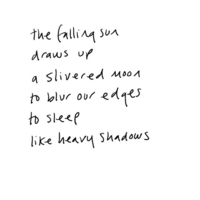 the falling sun
draws up
a slivered moon
to blur our edges
to sleep
like heavy shadows